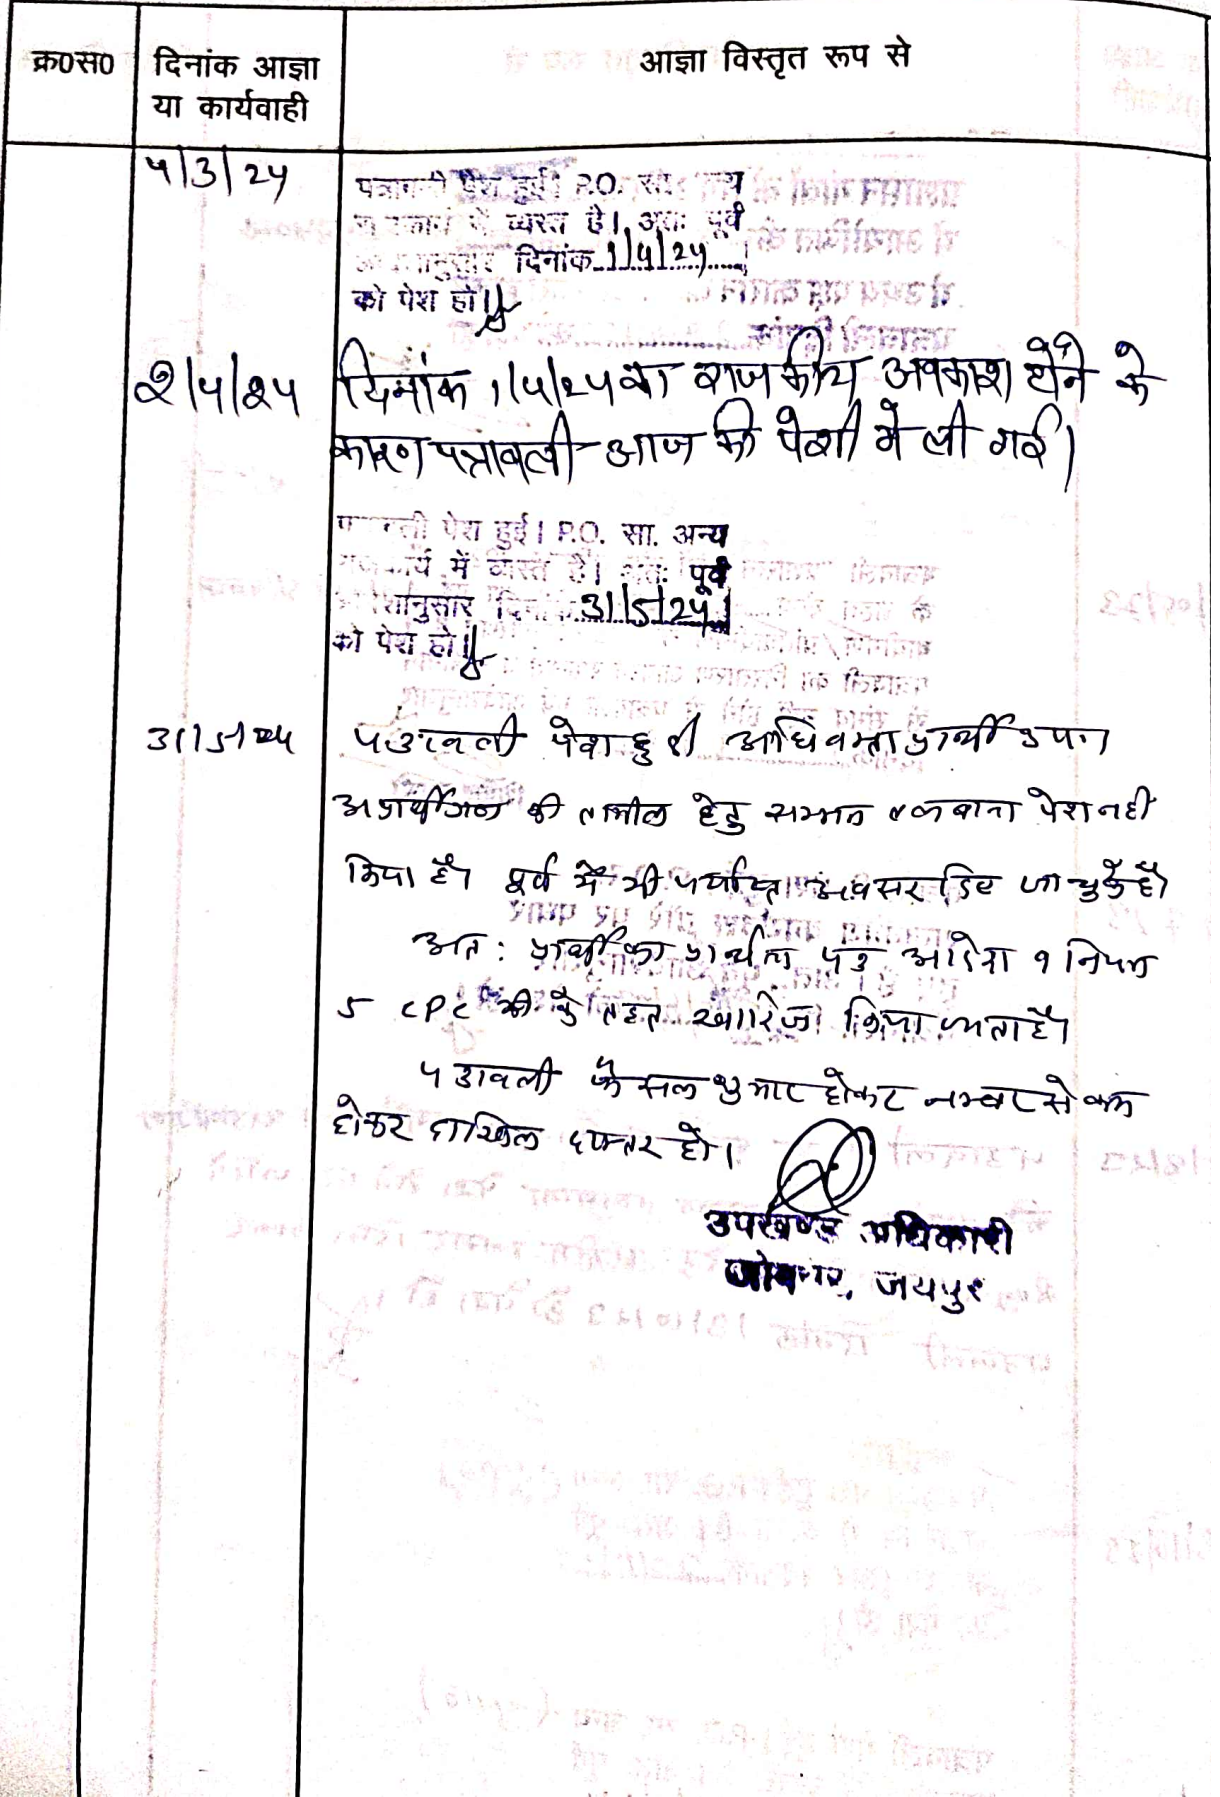 क्र0स0
दिनांक आज्ञा
या कार्यवाही
आज्ञा विस्तृत रूप से
5/3/24
पत्रावली पेश हुई। P.O. सा. अन्य
राजकार्य में व्यस्त है। अतः पूर्व
आदेशानुसार दिनांक 1/4/24
को पेश हो।
2/4/24
दिनांक 1/4/24 का राजकीय अवकाश होने के
कारण पत्रावली आज की पेशी में ली गई।
पत्रावली पेश हुई। P.O. सा. अन्य
राजकार्य में व्यस्त है। अतः पूर्व
आदेशानुसार दिनांक 31/5/24
को पेश हो।
31/5/24
पत्रावली पेश हुई। अधिवक्ता प्रार्थी उप।
अप्रार्थीगण की तामील हेतु सम्मन तलबाना पेश नही
किया है। पूर्व में भी पर्याप्त अवसर दिए जा चुके है।
अतः प्रार्थी का प्रार्थना पत्र आदेश 9 नियम
5 CPC के तहत खारिज किया जाता है।
पत्रावली फैसल शुमार होकर नम्बर से कम
होकर दाखिल दफ्तर हो।
उपखण्ड अधिकारी
जोबनेर, जयपुर